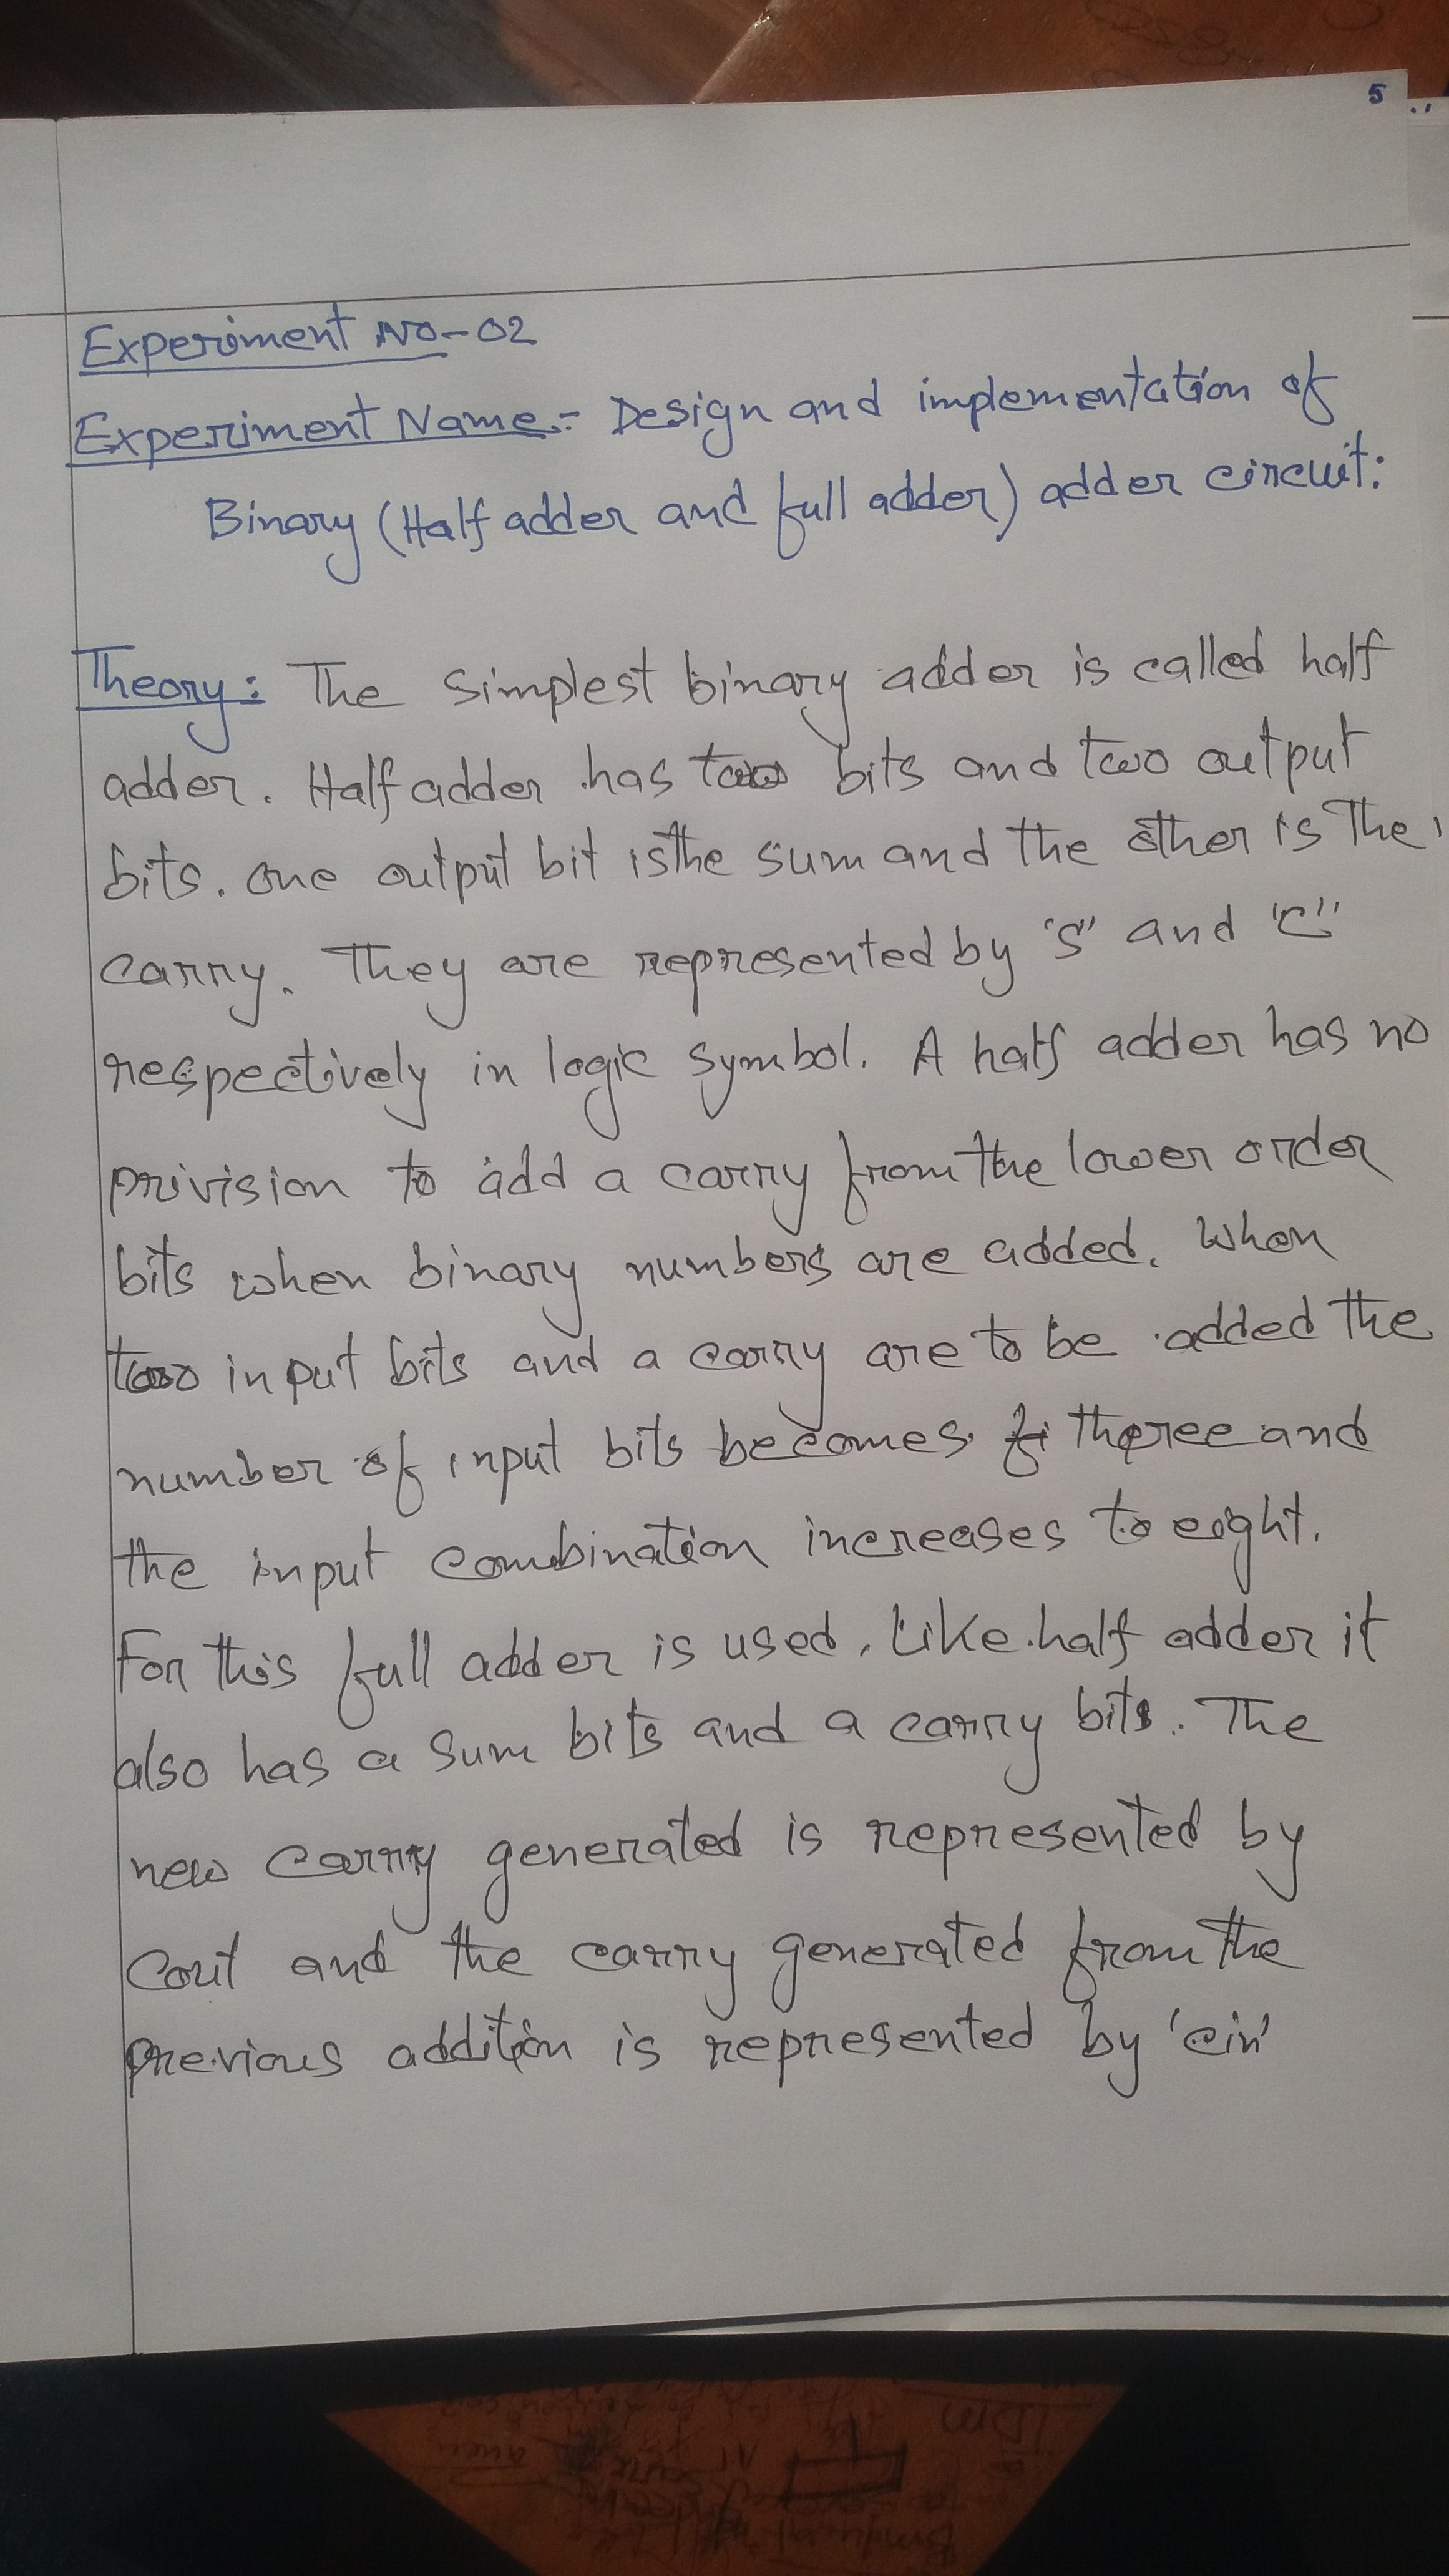 5
Experiment No-02
Experiment Name:- Design and implementation of
Binary (Half adder and full adder) adder circuit:
Theory: The simplest binary adder is called half
adder. Half adder has two bits and two output
bits. one output bit is the sum and the other is the
carry. They are represented by 'S' and "C"
respectively in logic symbol. A half adder has no
privision to add a carry from the lower order
bits when binary numbers are added. When
two input bits and a carry are to be added the
number of input bits becomes three and
the input combination increases to eight.
For this full adder is used. Like half adder it
also has a sum bits and a carry bits. The
new carry generated is represented by
Cout and the carry generated from the
previous addition is represented by 'cin'